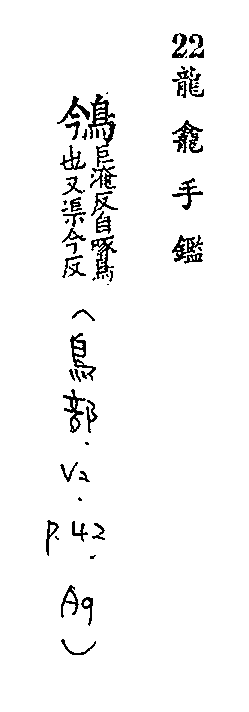 22龍龕手鑑
鳹巨淹反自啄鳥也又渠今反(鳥部.V2.P.42.A9)